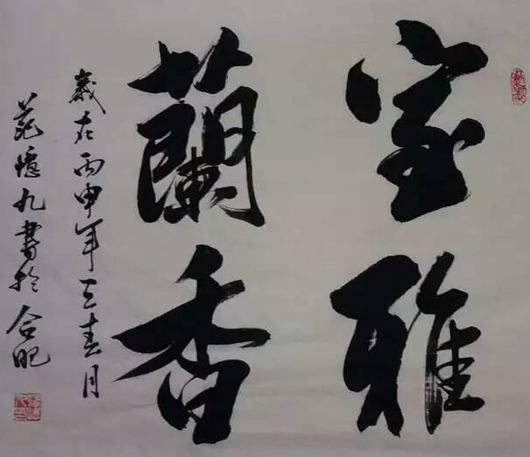 室雅
蘭香
歲在丙申年三春月
范憶九書於合肥